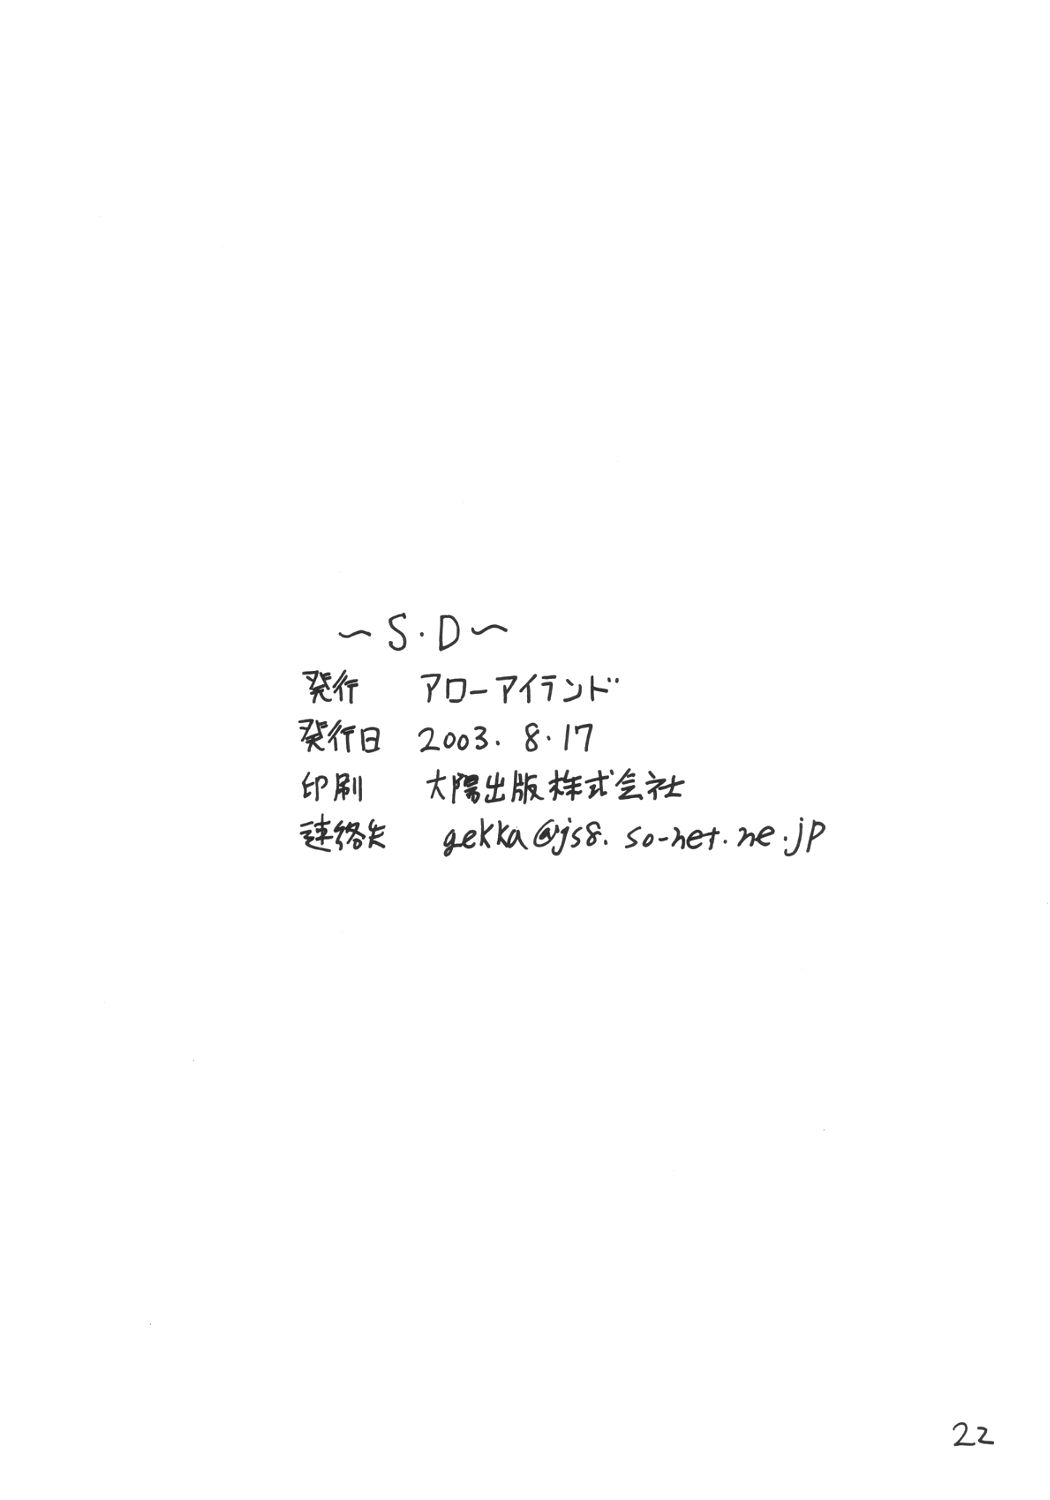 ～S・D～
発行 アローアイランド
発行日 2003. 8.17
印刷 大陽出版株式会社
連絡先 gekka@js8.so-net.ne.jp
22